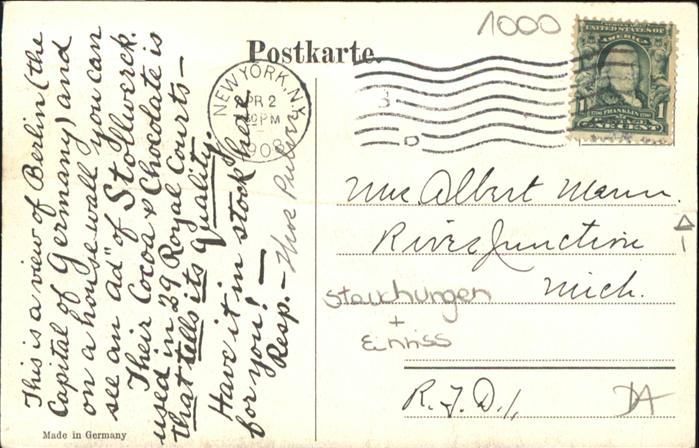 1000
Postkarte.
UNITED STATES OF
AMERICA
1 FRANKLIN 1
CENT
NEW YORK, N.Y.
APR 2
PM
1908
D
This is a view of Berlin (the
Capital of Germany) and
on a house wall you can
see an "ad" of Stollwerck.
Their Cocoa & Chocolate is
used in 29 Royal Courts —
that tells its Quality.
Have it in stock here
for you! —
Resp. —
Albert Mann.
River Junction
Mich.
R.F.D. 1,
Stauchungen
+
Einriss
Made in Germany